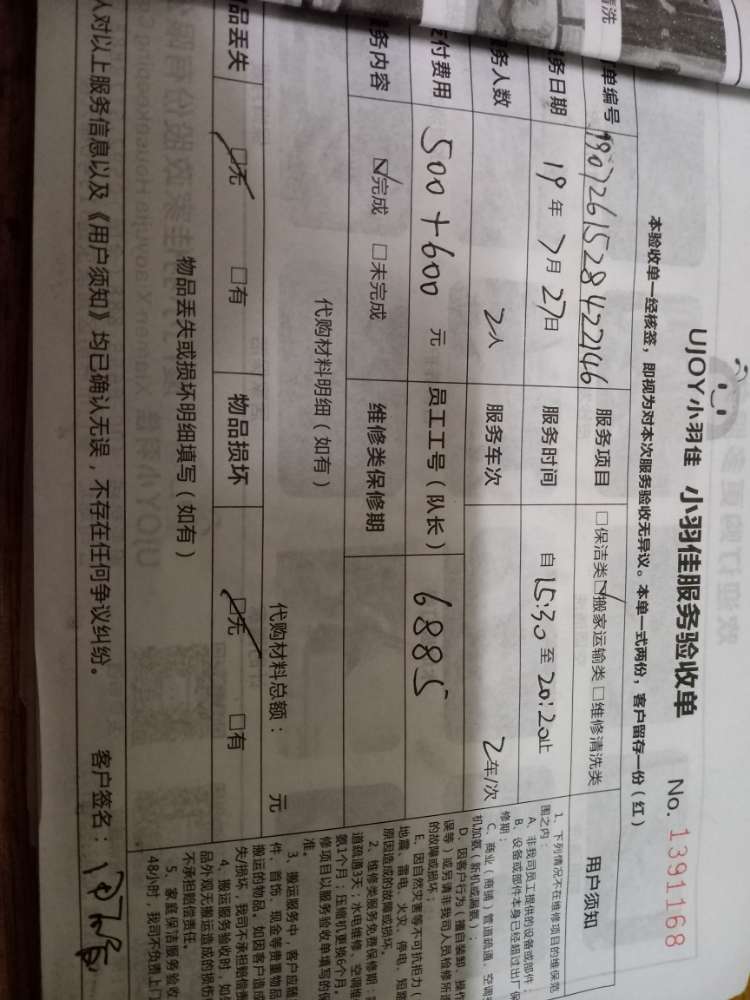 清洗
UJOY小羽佳 小羽佳服务验收单 No. 1391168
本验收单一经核签，即视为对本次服务验收无异议。本单一式两份，客户留存一份（红）
单编号 1907261528422146 服务项目 □保洁类 ☑搬家运输类 □维修清洗类
务日期 19年7月27日 服务时间 自15:30至20:20止
务人数 2人 服务车次 2车/次
付费用 500+600元 员工工号（队长） 6885
务内容 ☑完成 □未完成 维修类保修期
代购材料明细（如有）
代购材料总额： 元
品丢失 ☑无 □有 物品损坏 ☑无 □有
物品丢失或损坏明细填写（如有）
人对以上服务信息以及《用户须知》均已确认无误，不存在任何争议纠纷。 客户签名：
用户须知
1、下列情况不在维修项目的维保范
围之内：
A、非我司员工提供的设备或部件；
B、设备或部件本身已经超过出厂保
修期；
C、商业（商铺）管道疏通、空调
机加氨（新机或漏氨）；
D、因客户行为（擅自装卸、操作
误等）或另请非我司人员检修所
的故障或损坏；
E、因自然灾害等不可抗拒力（
地震、雷电、火灾、停电、短路
原因造成的故障或损坏。
2、维修类服务免费保修期：
道疏通3天；水电维修、空调维
氨1个月；压缩机更换6个月。
修项目以服务验收单填写的保
准。
3、搬运服务中，客户应随
件、首饰、现金等贵重物品
搬运的物品。如因客户造成
失/损坏，我司不承担赔偿责
4、搬运服务验收时，如
品外观无搬运造成的损伤
不承担赔偿责任。
5、家庭保洁服务验收
48小时，我司不负责上门